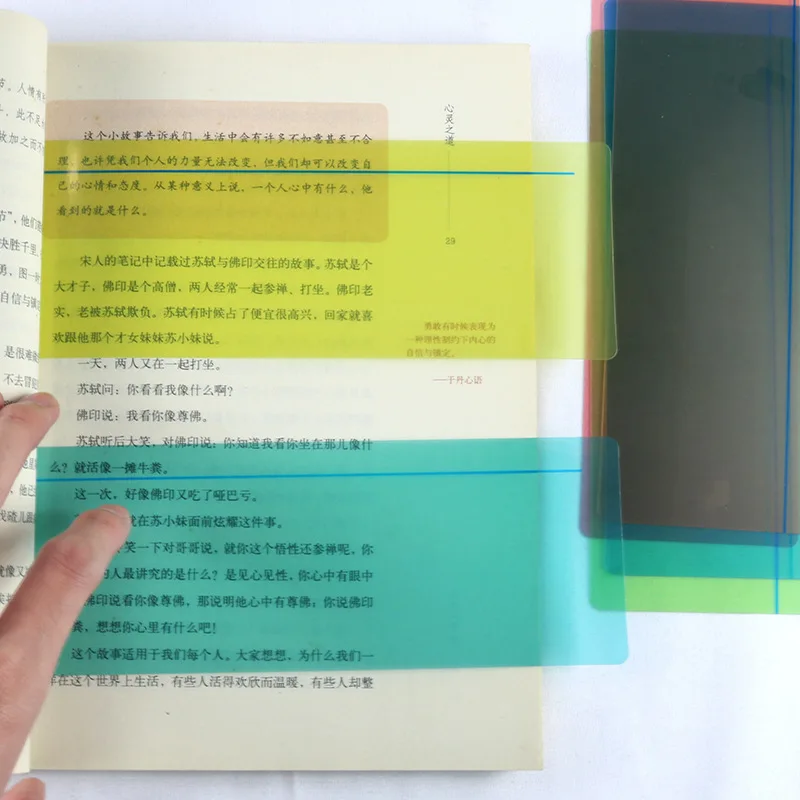 这个小故事告诉我们，生活中会有许多不如意甚至不合
理，也许凭我们个人的力量无法改变，但我们却可以改变自
己的心情和态度。从某种意义上说，一个人心中有什么，他
看到的就是什么。
宋人的笔记中记载过苏轼与佛印交往的故事。苏轼是个
大才子，佛印是个高僧，两人经常一起参禅、打坐。佛印老
实，老被苏轼欺负。苏轼有时候占了便宜很高兴，回家就喜
欢跟他那个才女妹妹苏小妹说。
一天，两人又在一起打坐。
苏轼问：你看看我像什么啊？
佛印说：我看你像尊佛。
苏轼听后大笑，对佛印说：你知道我看你坐在那儿像什
么？就活像一摊牛粪。
这一次，好像佛印又吃了哑巴亏。
就在苏小妹面前炫耀这件事。
笑一下对哥哥说，就你这个悟性还参禅呢，你
的人最讲究的是什么？是见心见性，你心中有眼中
佛印说看你像尊佛，那说明他心中有尊佛；你说佛印
粪，想想你心里有什么吧！
这个故事适用于我们每个人。大家想想，为什么我们一
在这个世界上生活，有些人活得欢欣而温暖，有些人却整
心灵之道
29
勇敢有时候表现为
一种理性制约下内心的
自信与镇定。
——于丹心语
节。人情有
，此不足
故加之而不
节”，他们
决胜千里
勇、图一时
自信与镇
是很难
不去冒犯